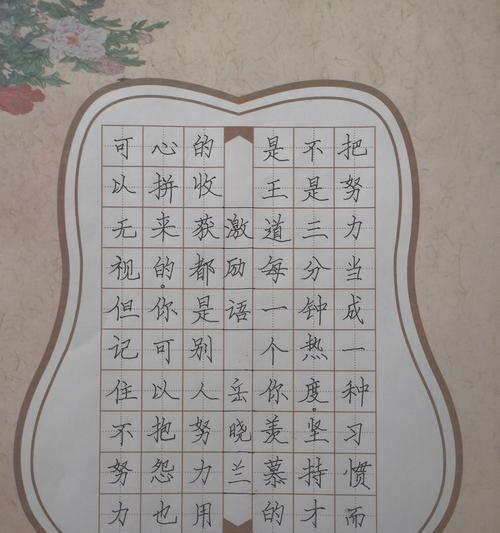 把努力当成一种习惯而
不是三分钟热度。坚持才
是王道每一个你羡慕的
激励语 岳晓兰
的收获都是别人努力用
心拼来的。你可以抱怨也
可以无视但记住不努力